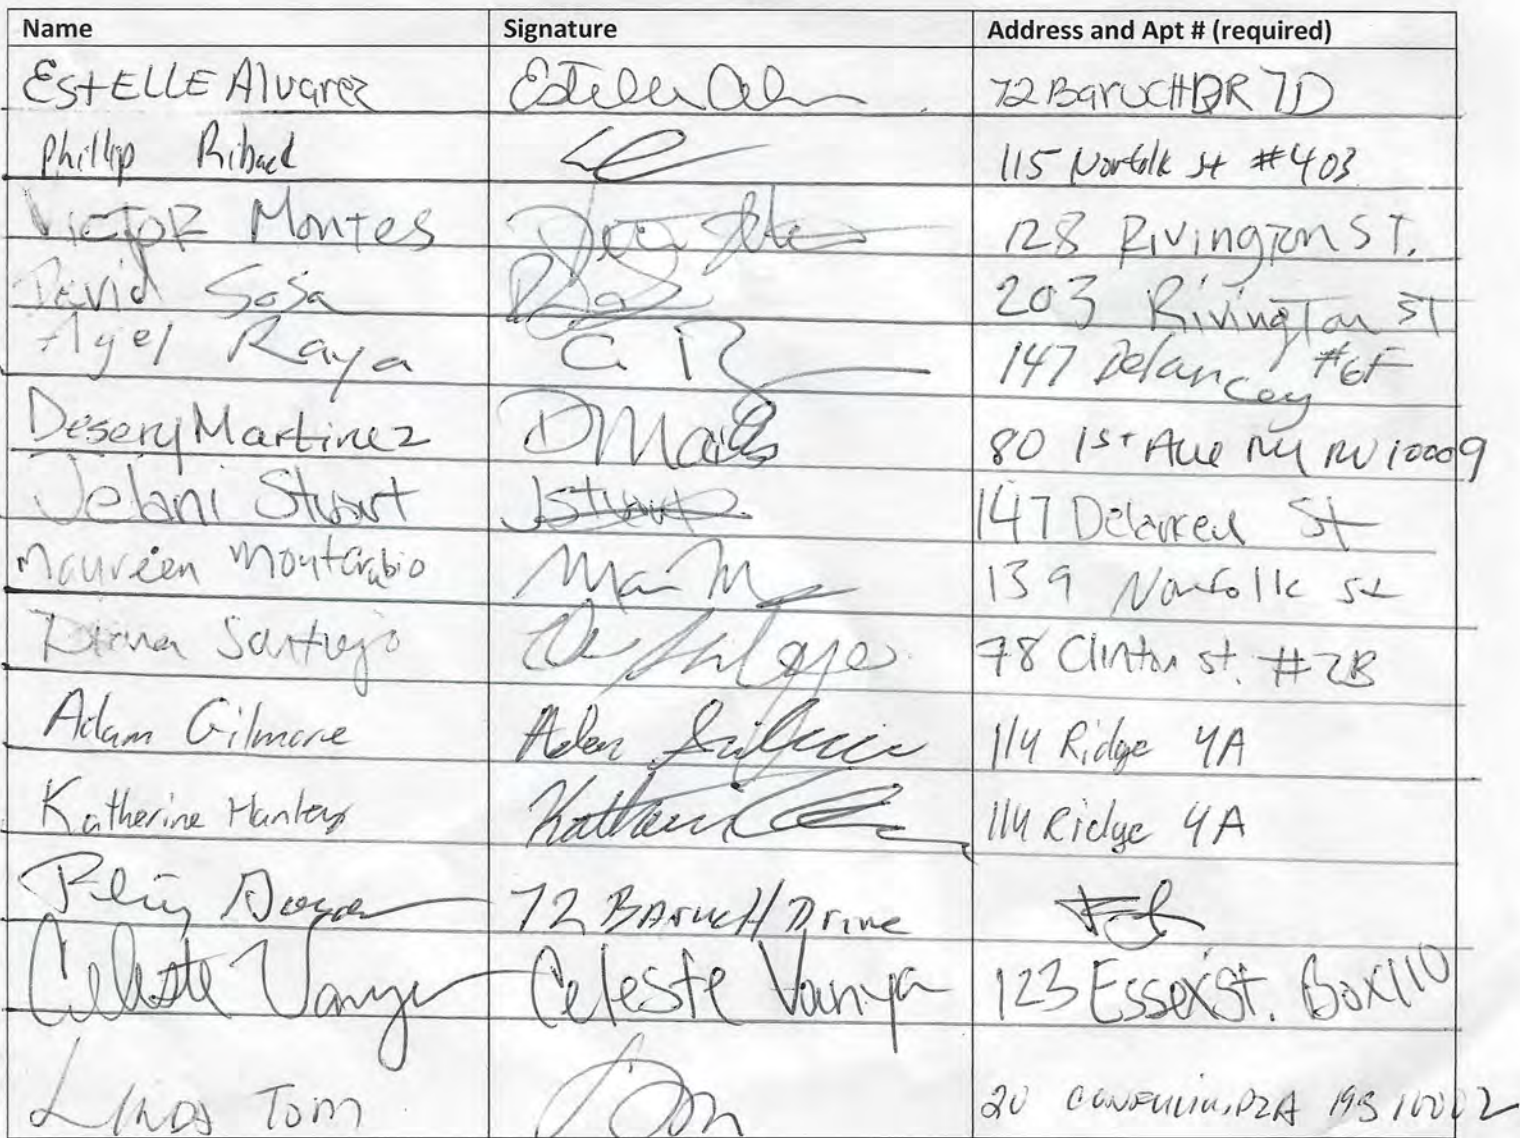 Name Signature Address and Apt # (required)
EstELLE Alvarez Estelle 72 BaruCH DR 7D
Phillip 115 Norfolk st #403
VICTOR Montes 128 RivingTon ST.
David Sosa 203 RivingTon ST
Raya 147 Delancey #6F
Desery Martinez D Mar 80 1st Ave NY NY 10009
Jelani Stuart JStuart 147 St
Maureen 139 Norfolk st
Diana 78 Clinton st. #2B
Adam Gilmore Adam 114 Ridge 4A
Katherine 114 Ridge 4A
72 BAruCH Drive
Celeste Vanya Celeste Vanya 123 Essex St. Box 110
LINDA Tom Tom 20 19B 10002